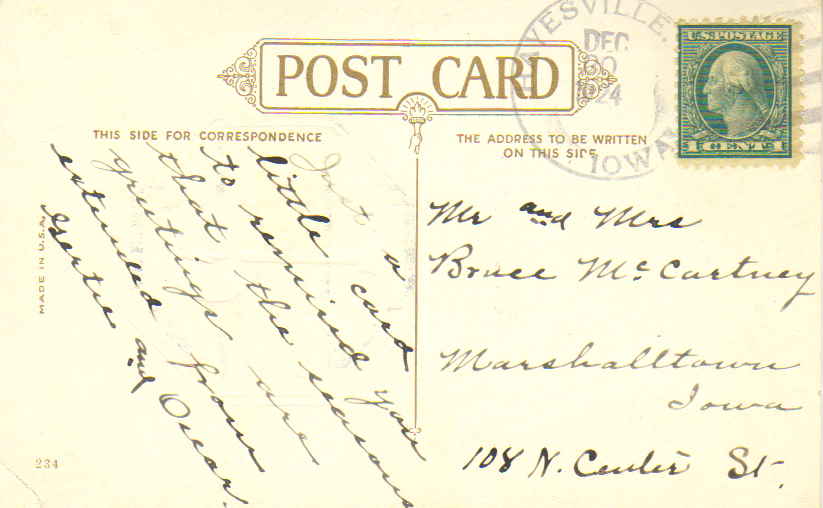 POST CARD
HAYESVILLE,
DEC
1924
IOWA
U.S. POSTAGE
1 CENT 1
THIS SIDE FOR CORRESPONDENCE
THE ADDRESS TO BE WRITTEN
ON THIS SIDE
Just a
little card
to remind you
that the seasons
greetings are
extended from
Gertie and Oscar.
Mr and Mrs
Bruce McCartney
Marshalltown
Iowa
108 N. Center St.
MADE IN U.S.A.
234